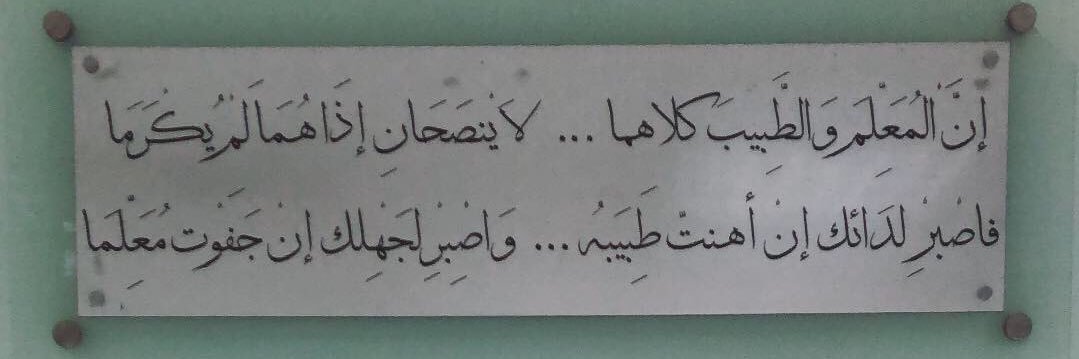 إِنَّ الْمُعَلِّمَ وَالطَّبِيبَ كلاهما ... لاَ يَنصَحَانِ إِذَا هُمَا لَمْ يُكْرَمَا
فاصْبِرْ لِدَائك إِنْ أهنتَ طَبِيبَهُ ... وَاصْبِرْ لِجَهْلِك إِنْ جَفَوْتَ مُعَلِّمَا